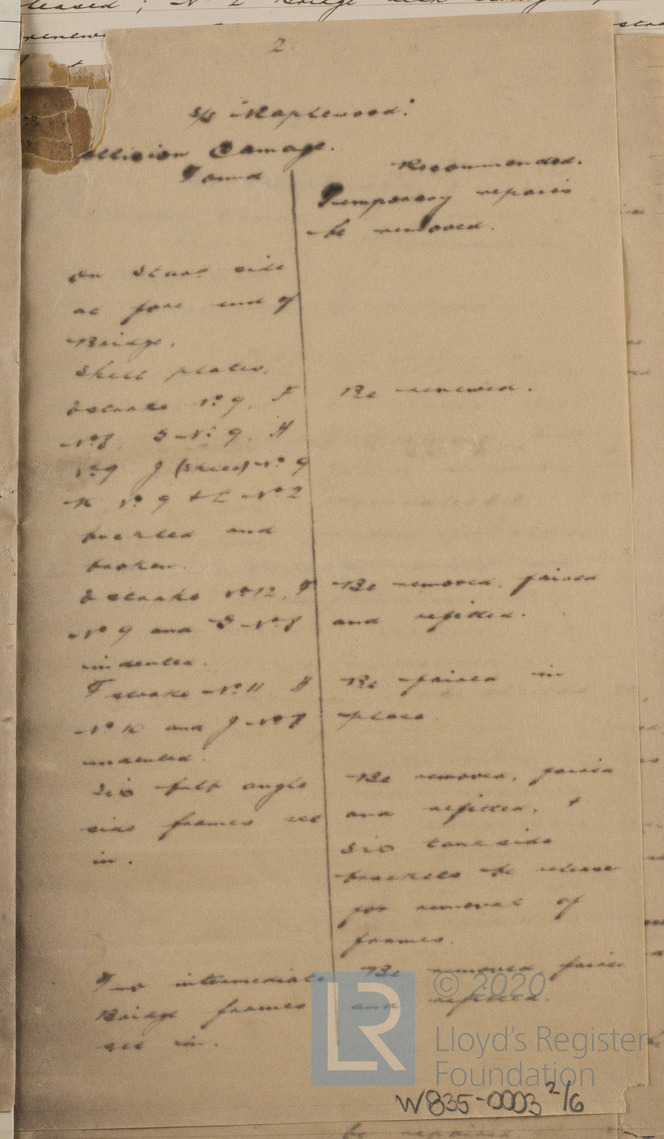 2
S/S "Maplewood."
ollision Damage.
Found
Recommended.
Temporary repairs
be removed.
On Starb side
at fore end of
Bridge.
Shell plates.
E strake No 9. F
Be renewed.
No 8. G No 9. H
No 9 J (Sheer) No 9
K No 9 & L No 2
buckled and
broken.
E strake No 12. F
Be removed, faired
No 9 and G No 8
and refitted.
indented.
F strake No 11. H
Be faired in
No 10 and J No 8
place.
indented.
Six bulb angle
Be removed, faired
side frames set
and refitted, &
in.
Six tank side
brackets be release
for removal of
frames.
Two intermediate
Be removed faired
Bridge frames
and refitted.
set in.
© 2020
LR
Lloyd's Register
Foundation
W835-0003 2/6
be repaired